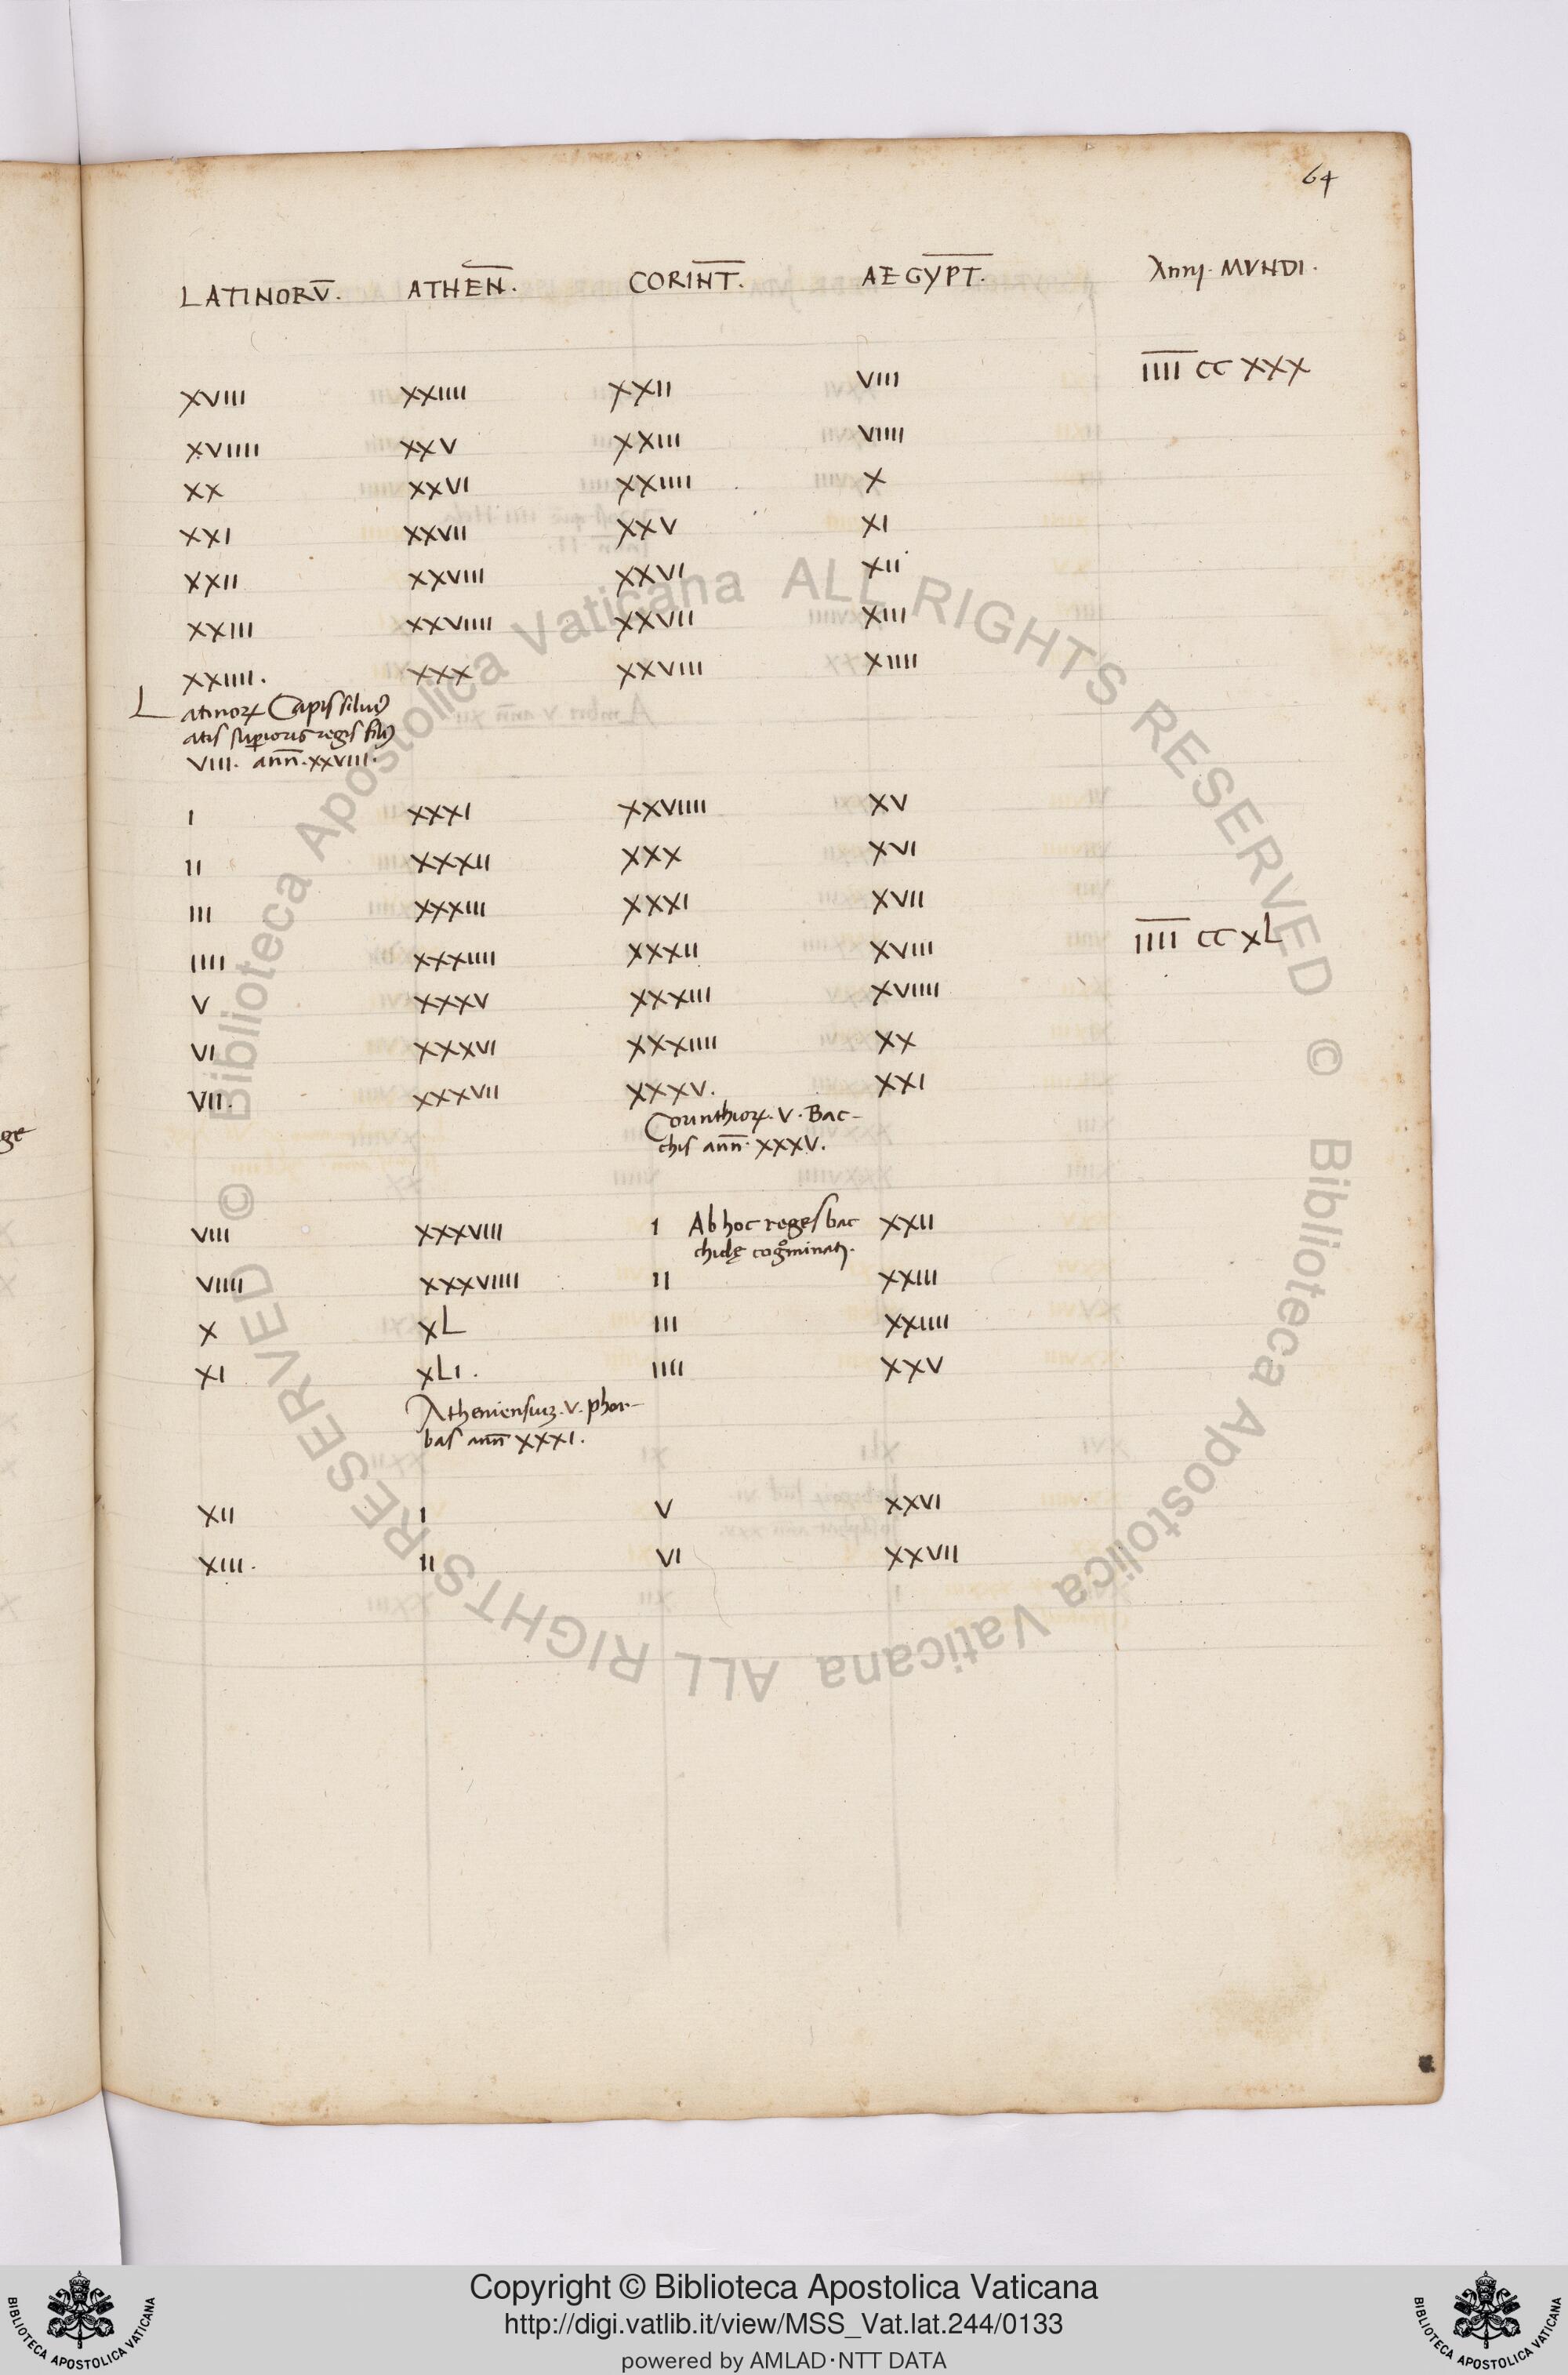 64
LATINORV̄. ATHEN̄. CORINT̄. AEGYPT̄. MVNDI.
XVIII XXIIII XXII VIII I̅I̅I̅I̅ CC XXX
XVIIII XXV XXIII VIIII
XX XXVI XXIIII X
XXI XXVII XXV XI
XXII XXVIII XXVI XII
XXIII XXVIIII XXVII XIII
XXIIII. XXX XXVIII XIIII
Latinoꝝ Capis siluiꝰ
atis suꝑioris regis filiꝰ
VIII. ann̄. XXVIII.
I XXXI XXVIIII XV
II XXXII XXX XVI
III XXXIII XXXI XVII
IIII XXXIIII XXXII XVIII I̅I̅I̅I̅ CC XL
V XXXV XXXIII XVIIII
VI XXXVI XXXIIII XX
VII. XXXVII XXXV. XXI
Corinthioꝝ. V. Bac-
chis ann̄. XXXV.
VIII XXXVIII I Ab hoc reges bac XXII
chidę cogͦminati.
VIIII XXXVIIII II XXIII
X XL III XXIIII
XI XLI. IIII XXV
Atheniensiuꝫ. V. phor-
bas ann̄ XXXI.
XII I V XXVI
XIII. II VI XXVII
ge
© Biblioteca Apostolica Vaticana ALL RIGHTS RESERVED
© Biblioteca Apostolica Vaticana ALL RIGHTS RESERVED
Copyright © Biblioteca Apostolica Vaticana
http://digi.vatlib.it/view/MSS_Vat.lat.244/0133
powered by AMLAD·NTT DATA
BIBLIOTECA APOSTOLICA VATICANA
BIBLIOTECA APOSTOLICA VATICANA